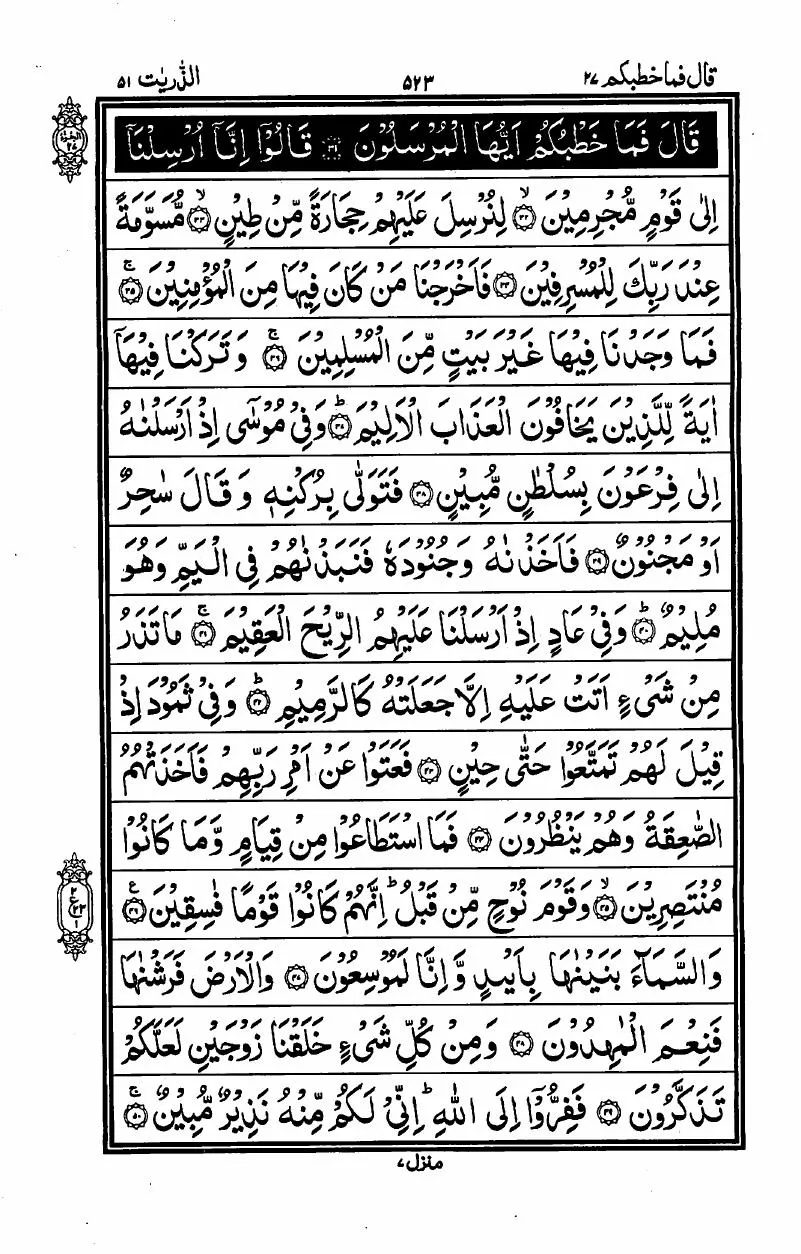 قال فما خطبكم ٢٧
٥٢٣
الذّٰریٰت ٥١
قَالَ فَمَا خَطْبُكُمْ اَیُّهَا الْمُرْسَلُوْنَ ۝٣١ قَالُوْۤا اِنَّاۤ اُرْسِلْنَاۤ
اِلٰى قَوْمٍ مُّجْرِمِیْنَۙ ۝٣٢ لِنُرْسِلَ عَلَیْهِمْ حِجَارَةً مِّنْ طِیْنٍۙ ۝٣٣ مُّسَوَّمَةً
عِنْدَ رَبِّكَ لِلْمُسْرِفِیْنَ ۝٣٤ فَاَخْرَجْنَا مَنْ كَانَ فِیْهَا مِنَ الْمُؤْمِنِیْنَۚ ۝٣٥
فَمَا وَجَدْنَا فِیْهَا غَیْرَ بَیْتٍ مِّنَ الْمُسْلِمِیْنَۚ ۝٣٦ وَ تَرَكْنَا فِیْهَاۤ
اٰیَةً لِّلَّذِیْنَ یَخَافُوْنَ الْعَذَابَ الْاَلِیْمَؕ ۝٣٧ وَ فِیْ مُوْسٰۤى اِذْ اَرْسَلْنٰهُ
اِلٰى فِرْعَوْنَ بِسُلْطٰنٍ مُّبِیْنٍ ۝٣٨ فَتَوَلّٰى بِرُكْنِهٖ وَ قَالَ سٰحِرٌ
اَوْ مَجْنُوْنٌ ۝٣٩ فَاَخَذْنٰهُ وَ جُنُوْدَهٗ فَنَبَذْنٰهُمْ فِی الْیَمِّ وَ هُوَ
مُلِیْمٌؕ ۝٤٠ وَ فِیْ عَادٍ اِذْ اَرْسَلْنَا عَلَیْهِمُ الرِّیْحَ الْعَقِیْمَۚ ۝٤١ مَا تَذَرُ
مِنْ شَیْءٍ اَتَتْ عَلَیْهِ اِلَّا جَعَلَتْهُ كَالرَّمِیْمِؕ ۝٤٢ وَ فِیْ ثَمُوْدَ اِذْ
قِیْلَ لَهُمْ تَمَتَّعُوْا حَتّٰى حِیْنٍ ۝٤٣ فَعَتَوْا عَنْ اَمْرِ رَبِّهِمْ فَاَخَذَتْهُمُ
الصّٰعِقَةُ وَ هُمْ یَنْظُرُوْنَ ۝٤٤ فَمَا اسْتَطَاعُوْا مِنْ قِیَامٍ وَّ مَا كَانُوْا
مُنْتَصِرِیْنَۙ ۝٤٥ وَ قَوْمَ نُوْحٍ مِّنْ قَبْلُؕ اِنَّهُمْ كَانُوْا قَوْمًا فٰسِقِیْنَ۠ ۝٤٦
وَ السَّمَآءَ بَنَیْنٰهَا بِاَیْىدٍ وَّ اِنَّا لَمُوْسِعُوْنَ ۝٤٧ وَ الْاَرْضَ فَرَشْنٰهَا
فَنِعْمَ الْمٰهِدُوْنَ ۝٤٨ وَ مِنْ كُلِّ شَیْءٍ خَلَقْنَا زَوْجَیْنِ لَعَلَّكُمْ
تَذَكَّرُوْنَ ۝٤٩ فَفِرُّوْۤا اِلَى اللّٰهِؕ اِنِّیْ لَكُمْ مِّنْهُ نَذِیْرٌ مُّبِیْنٌۚ ۝٥٠
منزل ٧